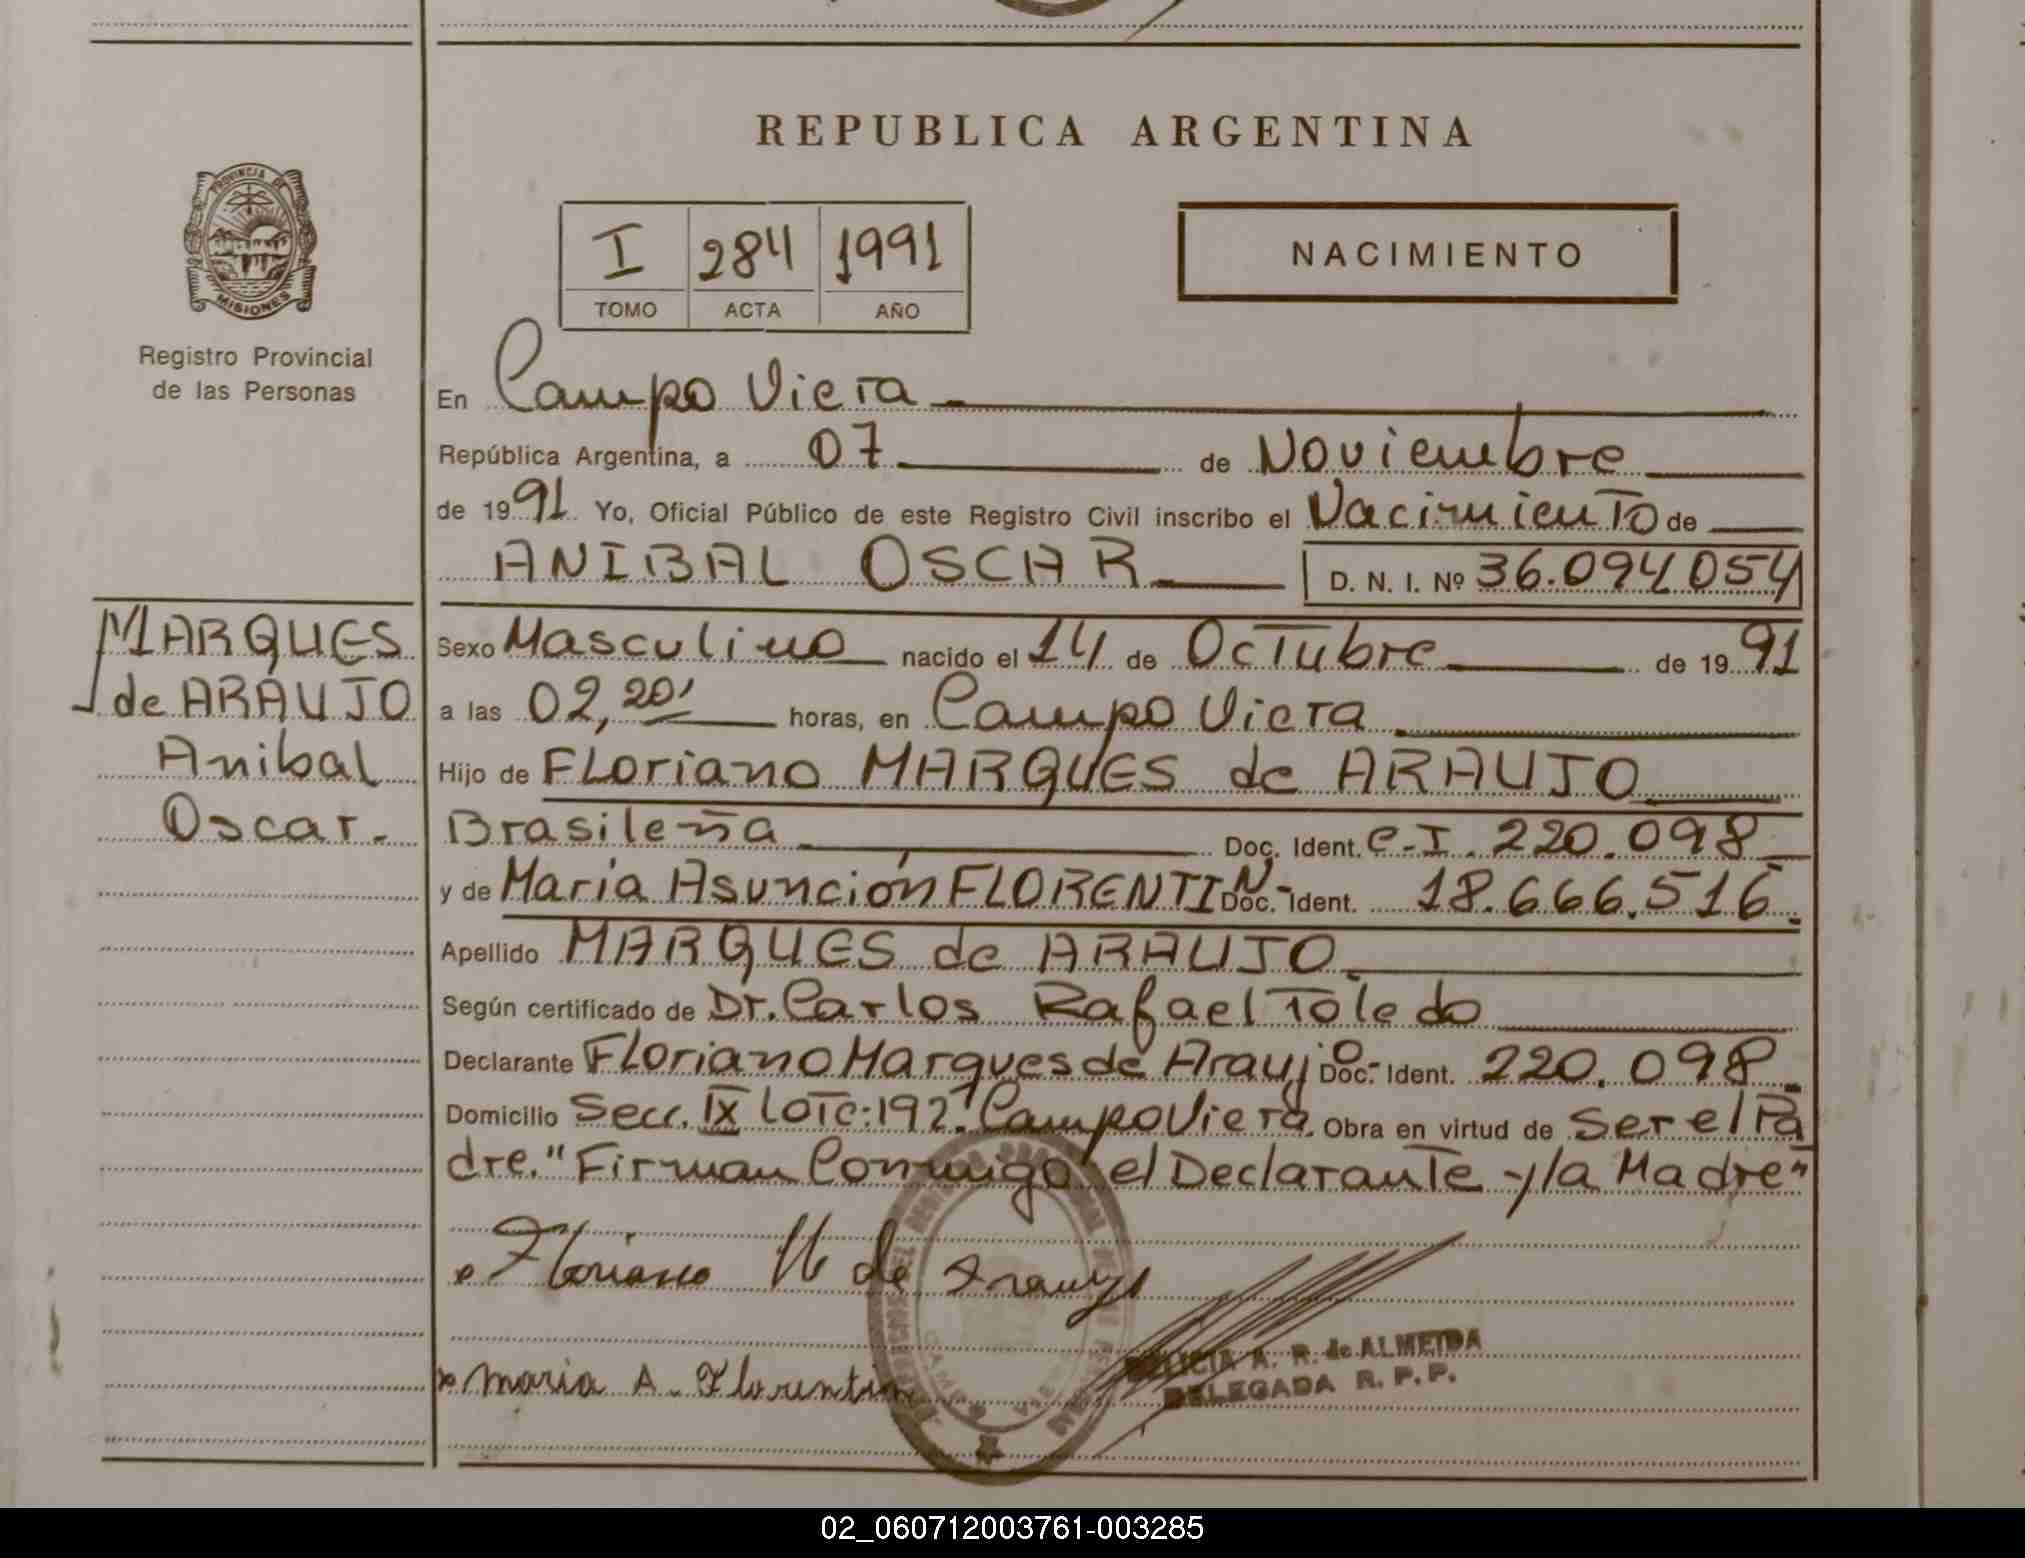 REPUBLICA ARGENTINA
PROVINCIA DE
MISIONES
Registro Provincial
de las Personas
I 284 1991
TOMO ACTA AÑO
NACIMIENTO
En Campo Viera
República Argentina, a 07 de Noviembre
de 1991 Yo, Oficial Público de este Registro Civil inscribo el Nacimiento de
ANIBAL OSCAR D. N. I. Nº 36.094.054
MARQUES
de ARAUJO
Anibal
Oscar.
Sexo Masculino nacido el 14 de Octubre de 1991
a las 02,20' horas, en Campo Viera
Hijo de Floriano MARQUES de ARAUJO
Brasileña Doc. Ident. C.I. 220.098
y de María Asunción FLORENTIN.- Doc. Ident. 18.666.516.
Apellido MARQUES de ARAUJO.
Según certificado de Dr. Carlos Rafael Toledo
Declarante Floriano Marques de Araujo.- Doc. Ident. 220.098.
Domicilio Secc. IX Lote: 192. Campo Viera. Obra en virtud de Ser el Pa
dre. "Firman Conmigo el Declarante y la Madre"
Floriano M de Araujo
Maria A. Florentin
A. R. de ALMEIDA
DELEGADA R. P. P.
02_060712003761-003285